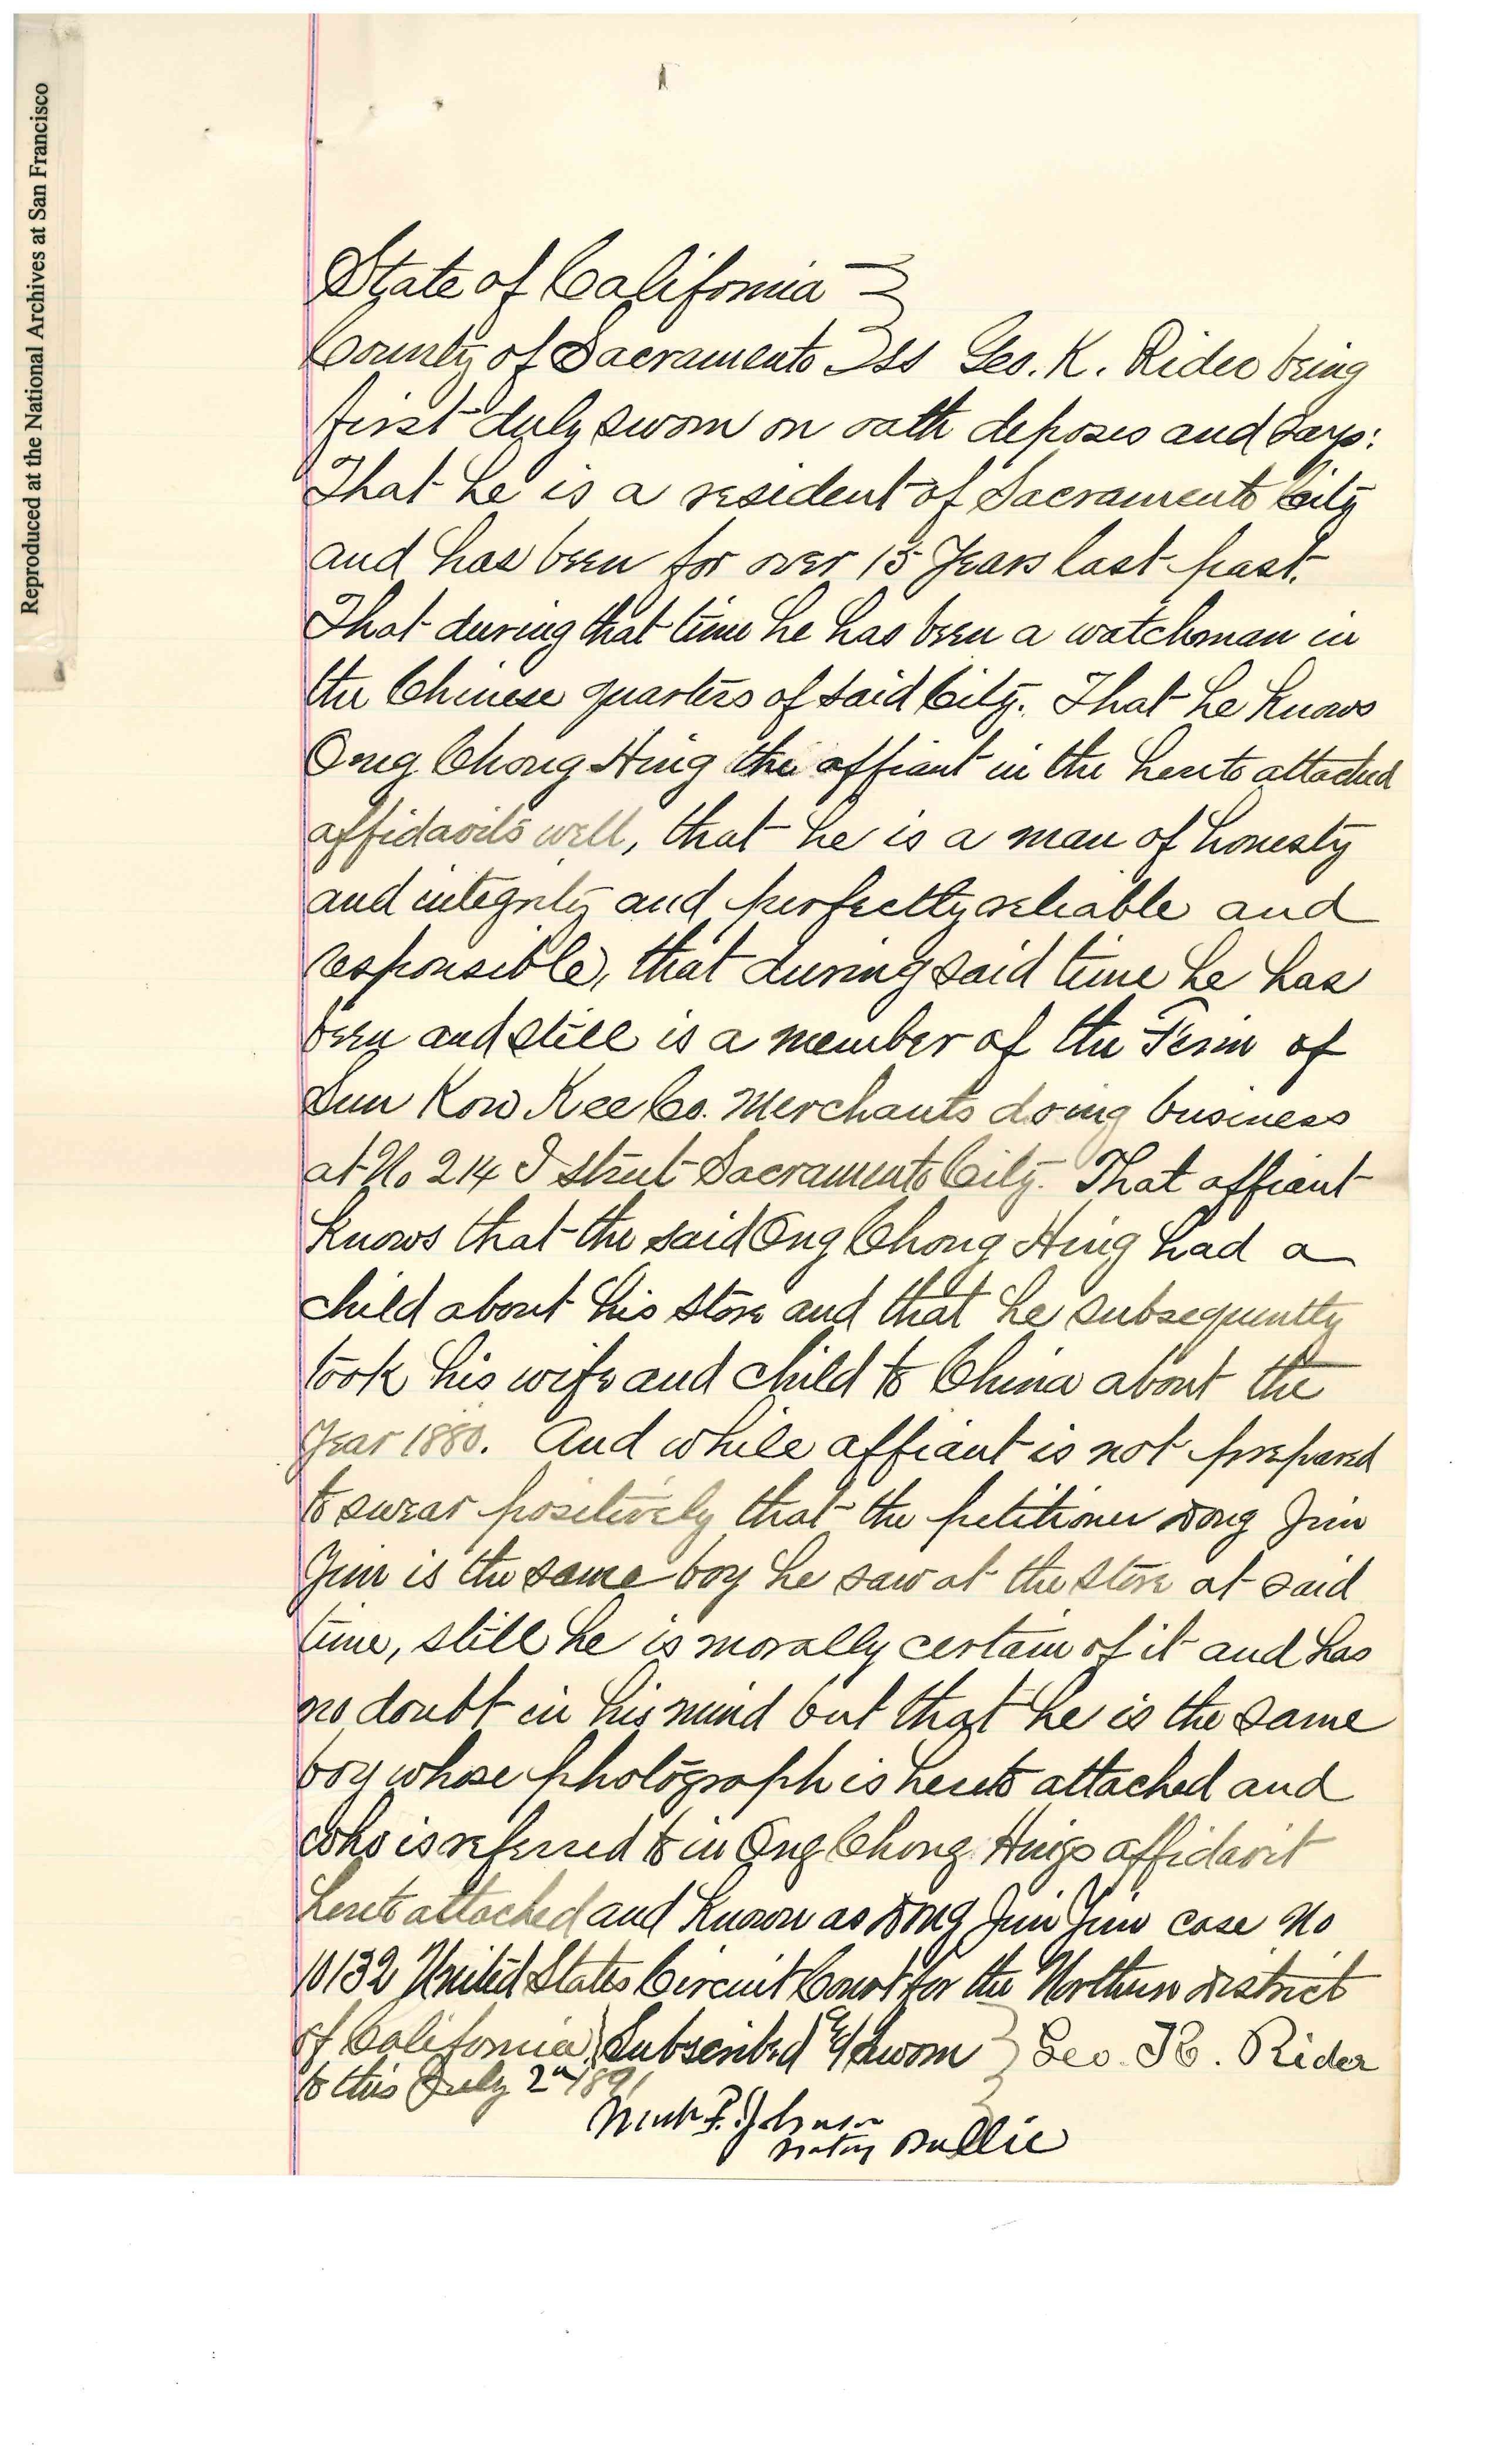 Reproduced at the National Archives at San Francisco
State of California
County of Sacramento ss Geo. K. Rider being
first duly sworn on oath deposes and says:
That he is a resident of Sacramento City
and has been for over 15 years last past.
That during that time he has been a watchman in
the Chinese quarters of said City. That he knows
Ong Chong Hing the affiant in the hereto attached
affidavits well, that he is a man of honesty
and integrity and perfectly reliable and
responsible, that during said time he has
been and still is a member of the Firm of
Sun Kow Kee Co. Merchants doing business
at No 214 I street Sacramento City. That affiant
knows that the said Ong Chong Hing had a
child about his store and that he subsequently
took his wife and child to China about the
year 1880. And while affiant is not prepared
to swear positively that the petitioner Dong Jim
Yim is the same boy he saw at the store at said
time, still he is morally certain of it and has
no doubt in his mind but that he is the same
boy whose photograph is hereto attached and
who is referred to in Ong Chong Hings affidavit
hereto attached and known as Dong Jim Yim case No
10132 United States Circuit Court for the Northern district
of California. Subscribed & Sworn Geo. K. Rider
to this July 2nd 1891
F. Johnson
Notary Public